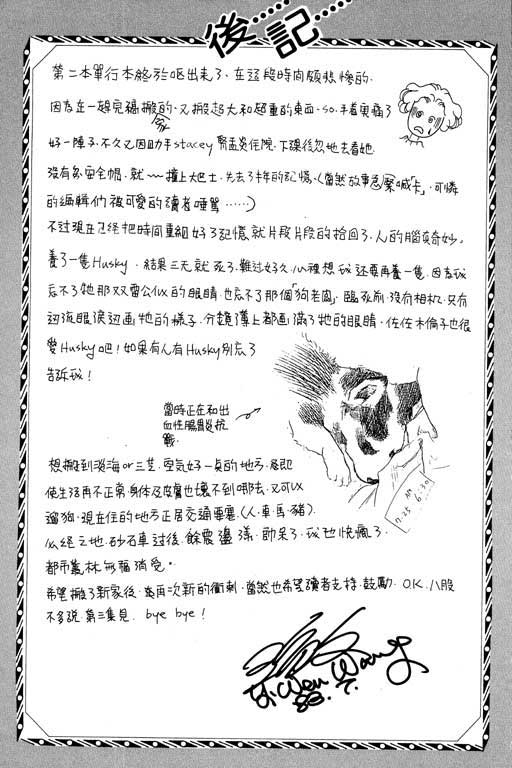 後記
第二本單行本終於嘔出來了、在這段時間頗悲慘的.
因為在一趟完稿搬的、又搬超大和超重的東西、so.手省更痛了
家
好一陣子.不久又因助手stacey 腎盂炎住院.下課後忽地去看她.
沒有多安全帽.就~~撞上大巴士.失去了半年的記憶、(當然故事急緊喊「卡」.可憐
的編輯們被可愛的讀者唾罵……)
不過現在已經把時間重組好了記憶就片段片段的拾回了.人的腦真奇妙。
養了一隻Husky.結果三天就死了.難過好久.心裡想我還要再養一隻.因為我
忘不了牠那雙雷公似的眼睛.也忘不了那個「狗老闆」.臨死前.沒有相机.只有
邊流眼淚邊画牠的樣子.分鏡簿上都画滿了牠的眼睛.佐佐木倫子也很
愛Husky吧!如果有人有Husky別忘了
告訴我!
當時正在和出
血性腸胃炎抗
戰.
想搬到淡海or三芝.空氣好一點的地方.
使生活再不正常.身体及皮膚也壞不到哪去.又可以
遛狗.現在住的地方正居交通要塞.(人.車.馬.豬).
必經之地.砂石車過後.餘震盪漾.助呆了.我也快瘋了.
都市叢林無福消受。
希望搬了新家後.為再次新的衝刺.當然也希望讀者支持.鼓勵.O.K.八股
不多說.第三集見. bye bye!
Yi.Wen Wang
88. 7.